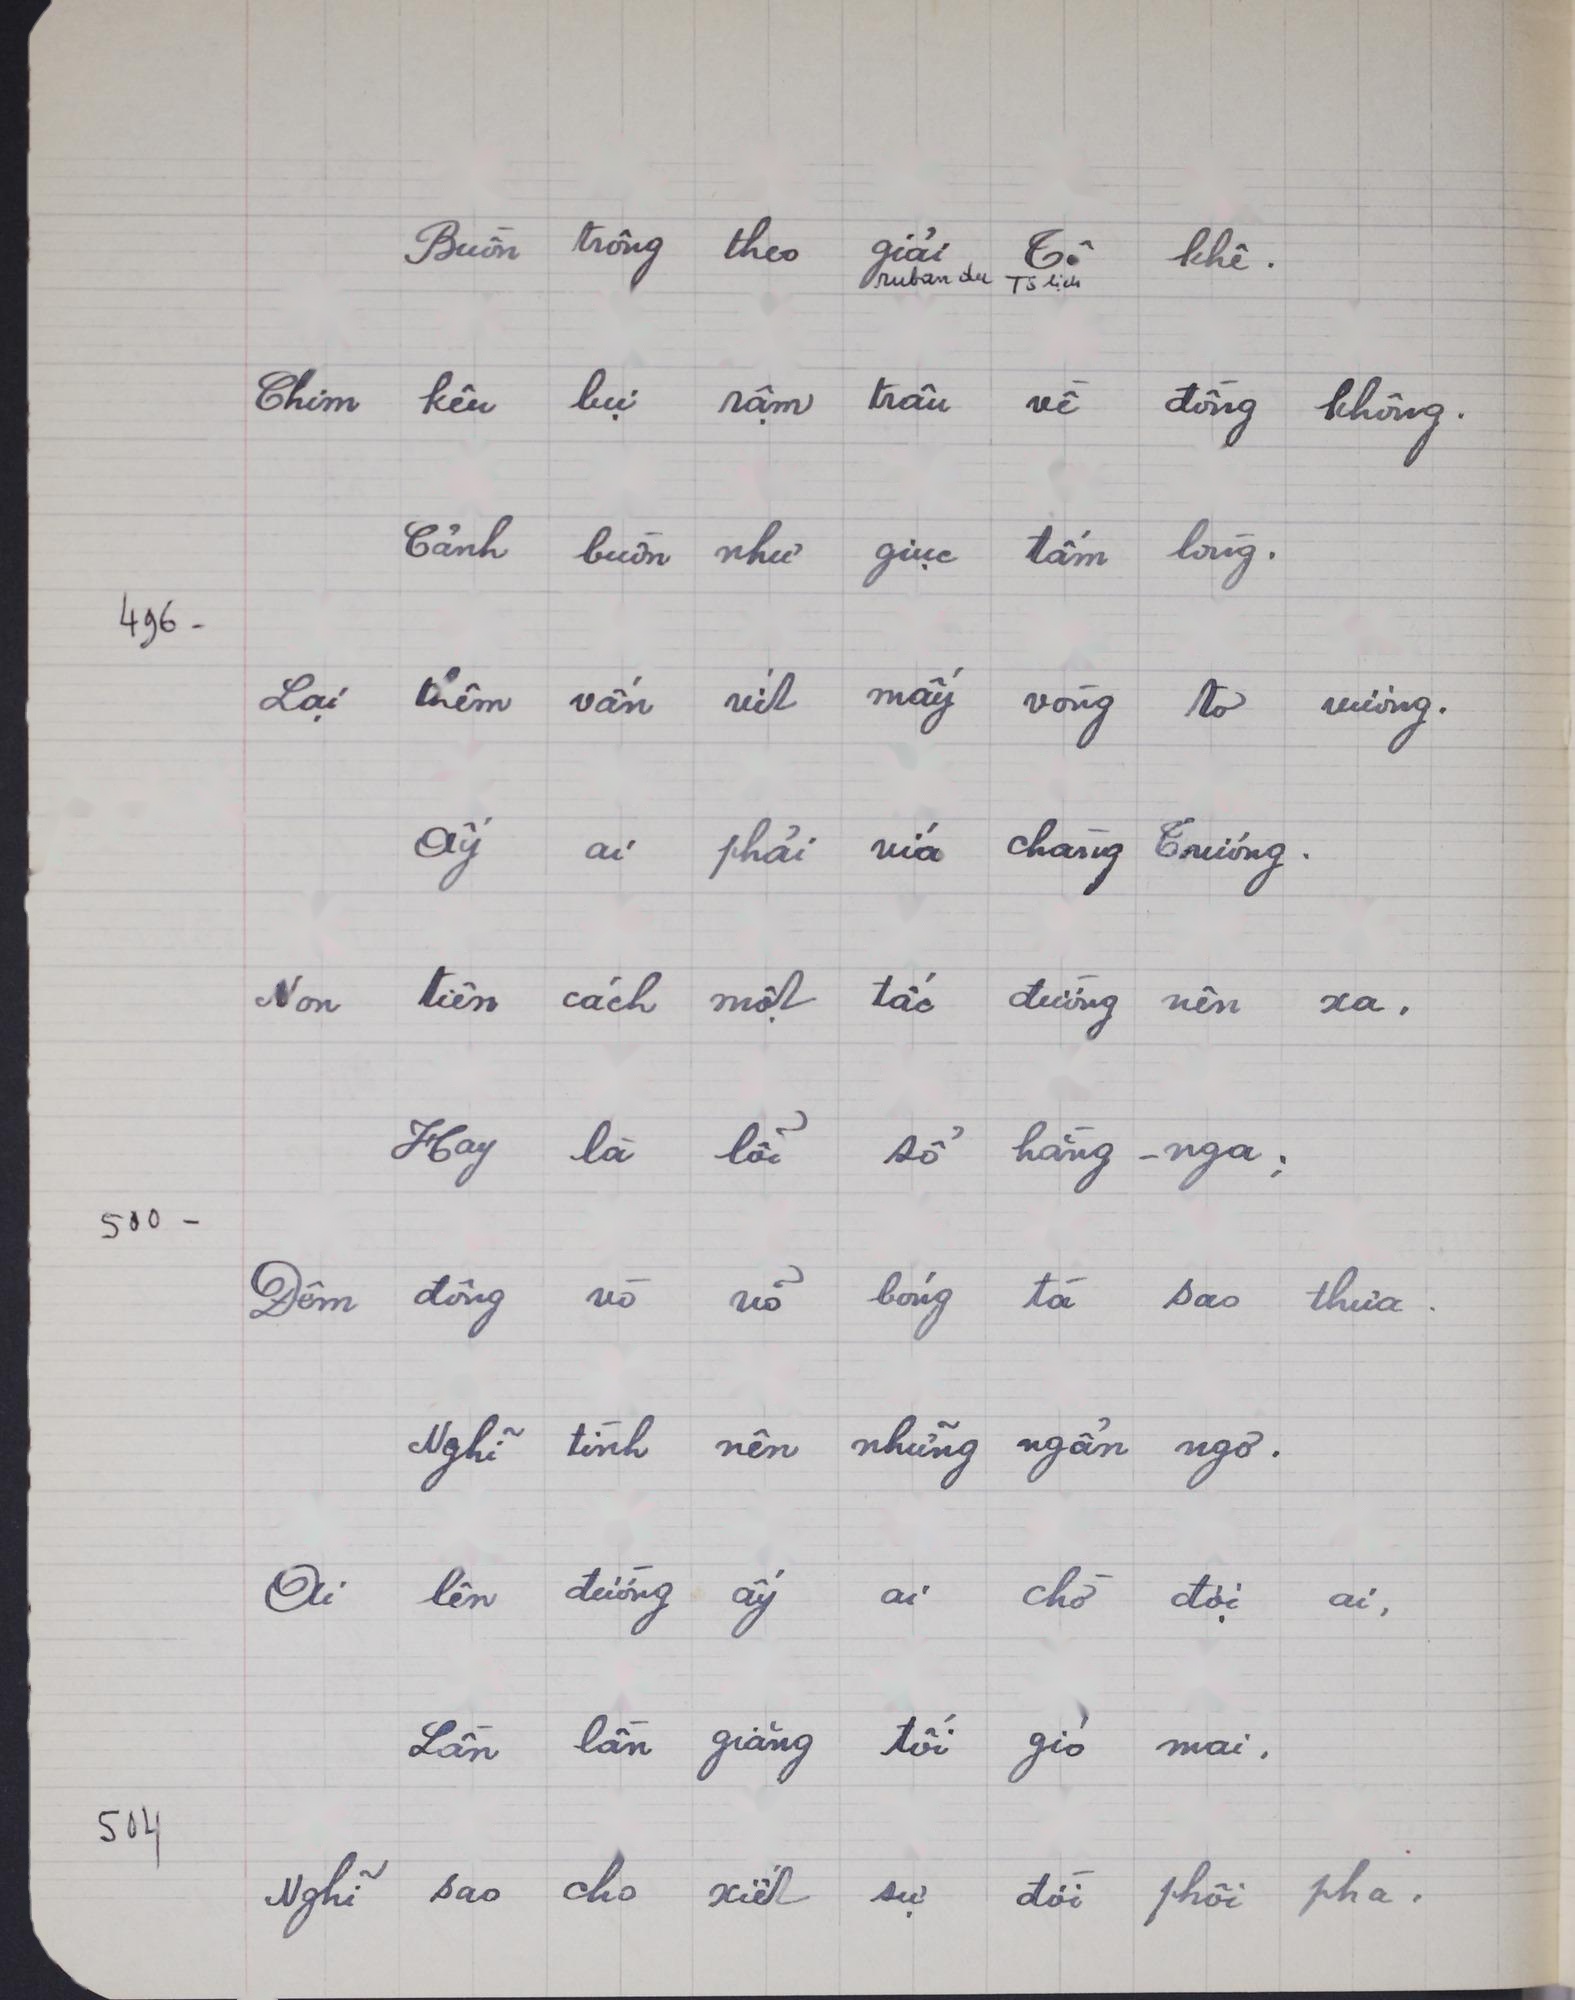 Buồn trông theo giải Tô khê.
ruban du Tô lịch
Chim kêu bụi rậm trâu về đồng không.
Cảnh buồn như giục tấm lòng.
496 -
Lại thêm vấn vít mấy vòng tơ vương.
Ấy ai phải vía chàng Trương.
Non tiên cách một tấc đường nên xa.
Hay là lỗi số hằng - nga;
500 -
Đêm đông vò võ bóng tà sao thưa.
Nghĩ tình nên những ngẩn ngơ.
Ai lên đường ấy ai chờ đợi ai,
Lần lần giăng tối gió mai.
504
Nghĩ sao cho xiết sự đời phôi pha.